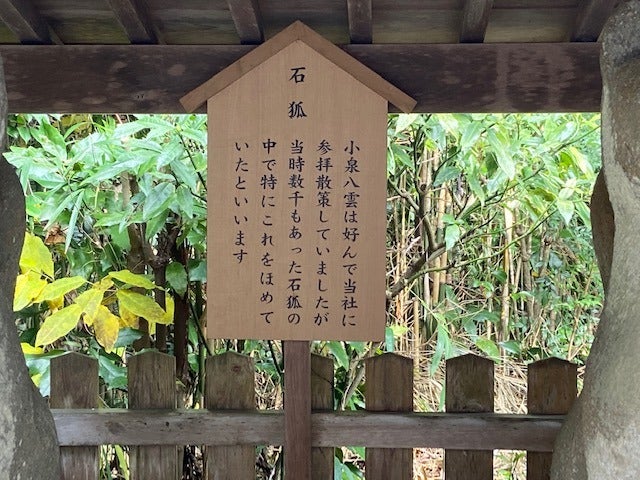 石狐
小泉八雲は好んで当社に
参拝散策していましたが
当時数千もあった石狐の
中で特にこれをほめて
いたといいます